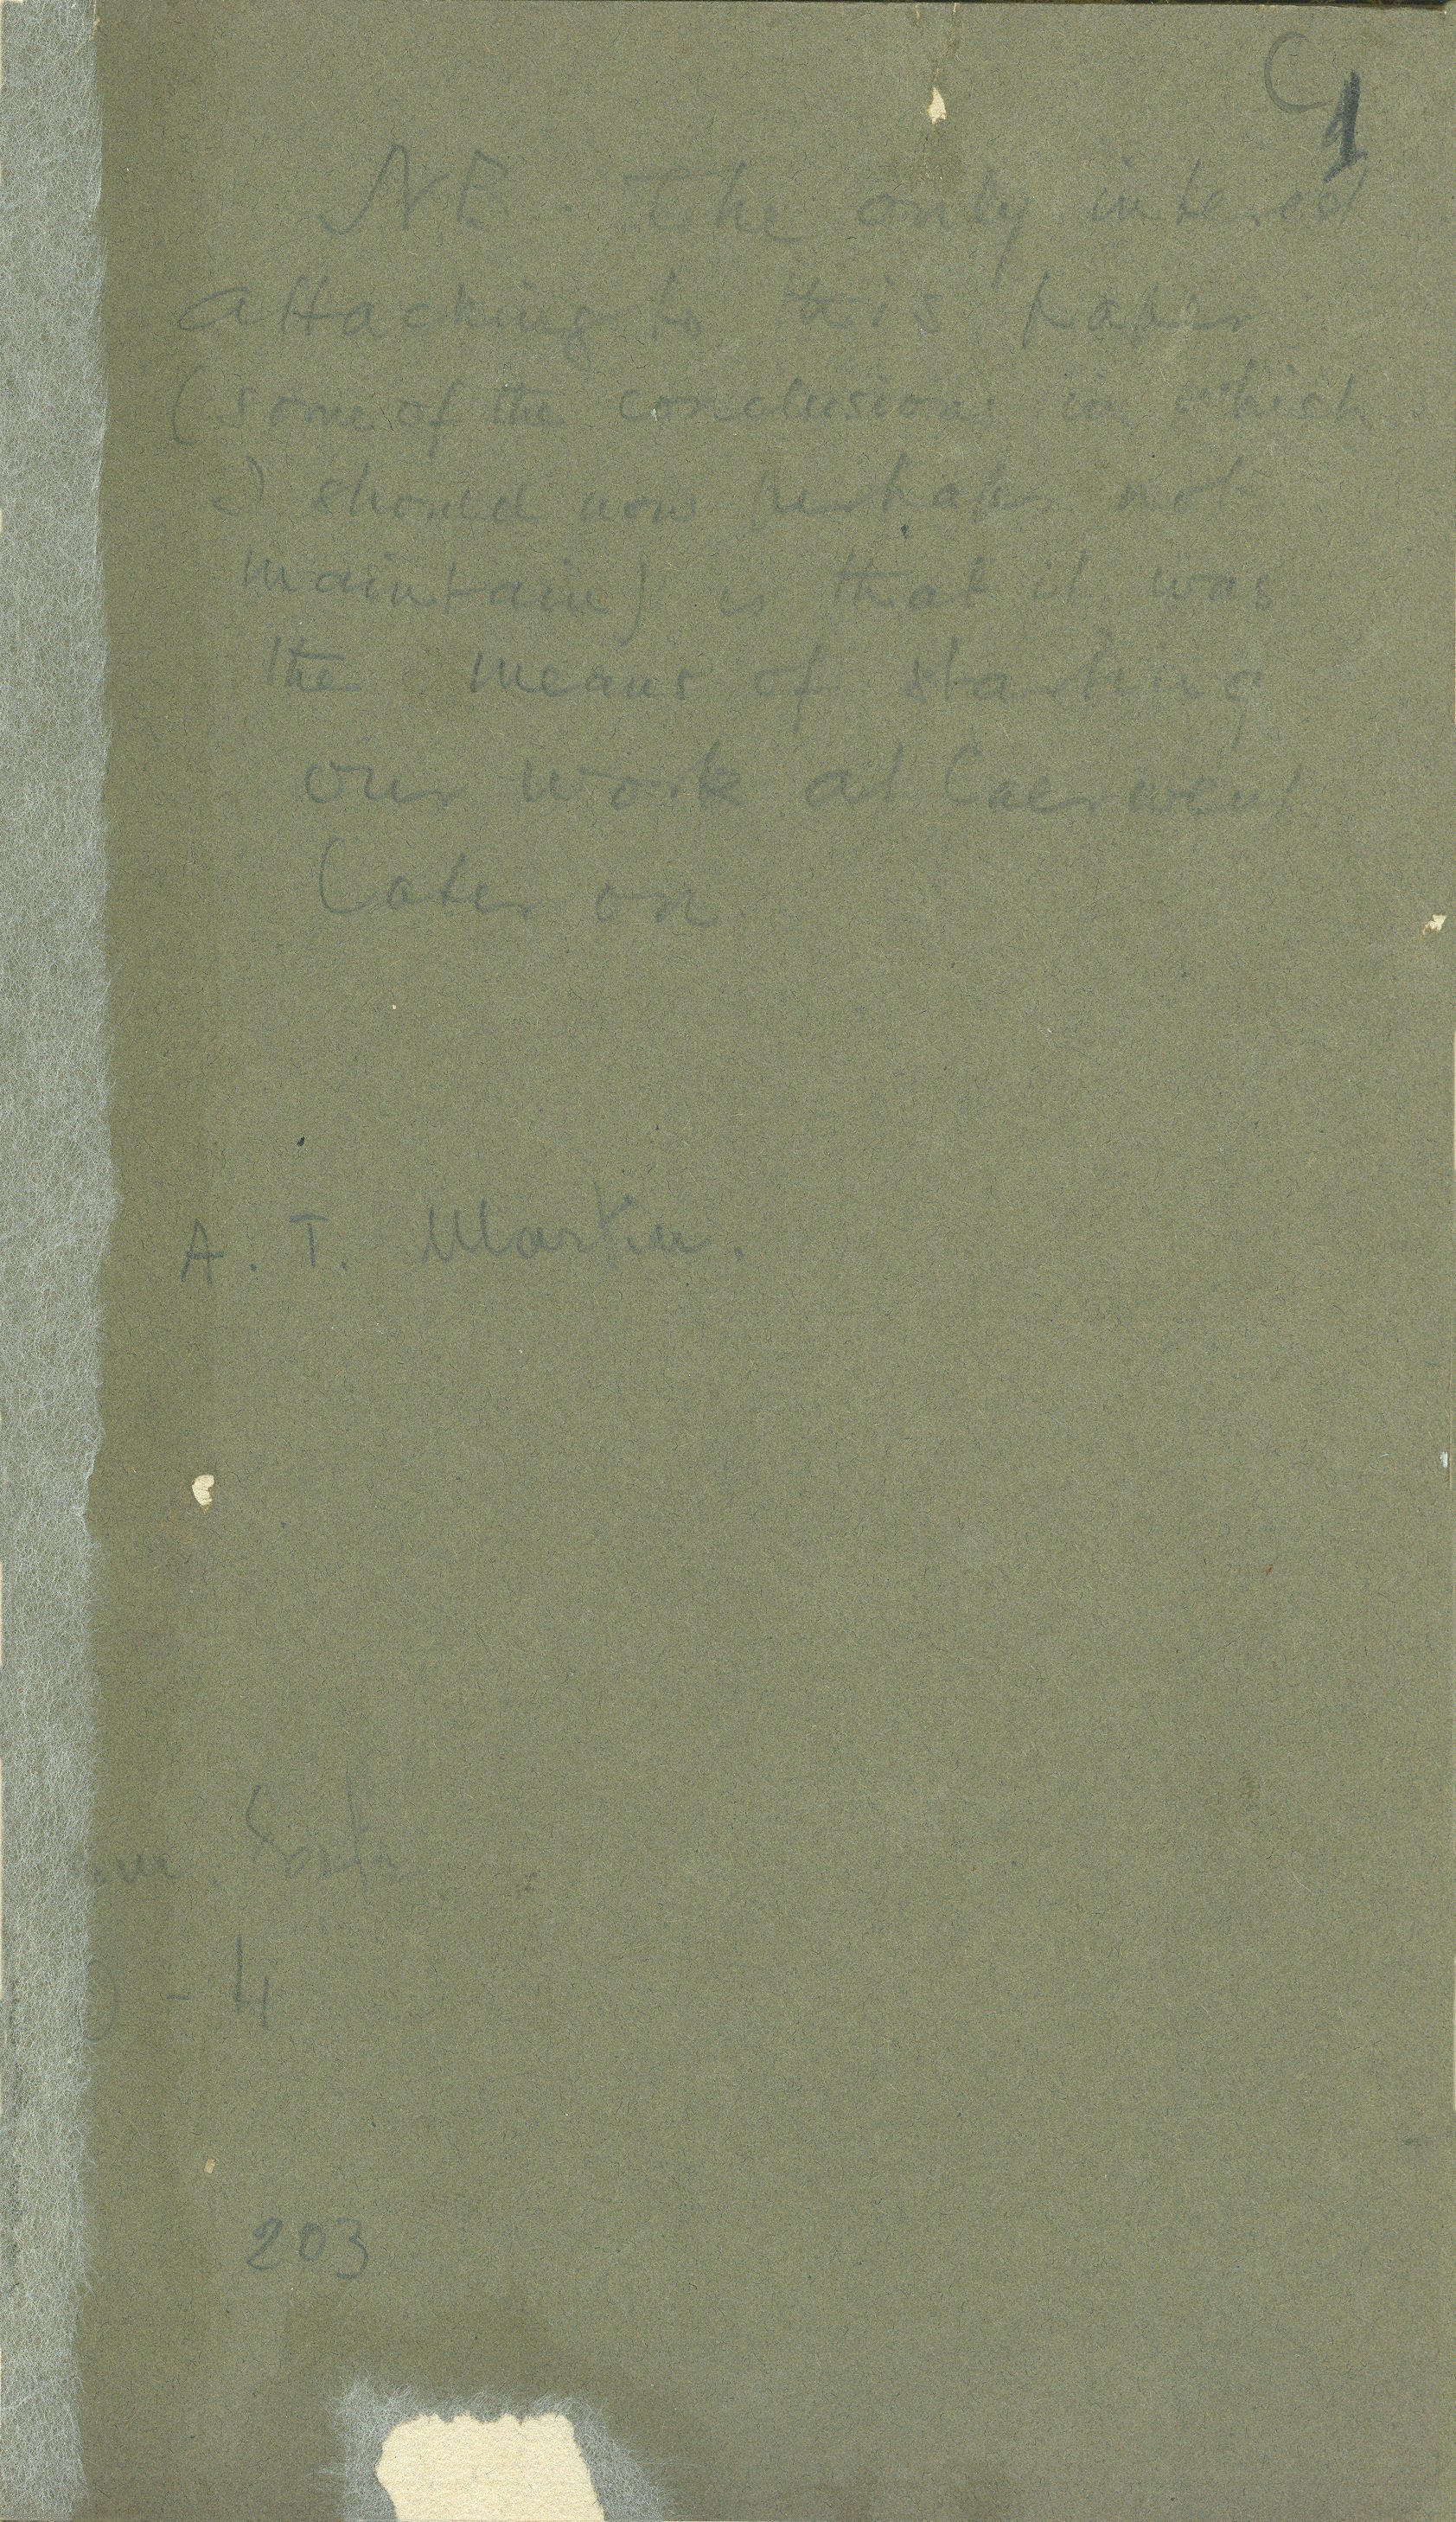 C1
NB. The only interest
attaching to this paper
(some of the conclusions in which
I should now perhaps not
maintain) is that it was
the means of starting
our work at Caerwent
later on.
A. T. Martin.
- 4
203